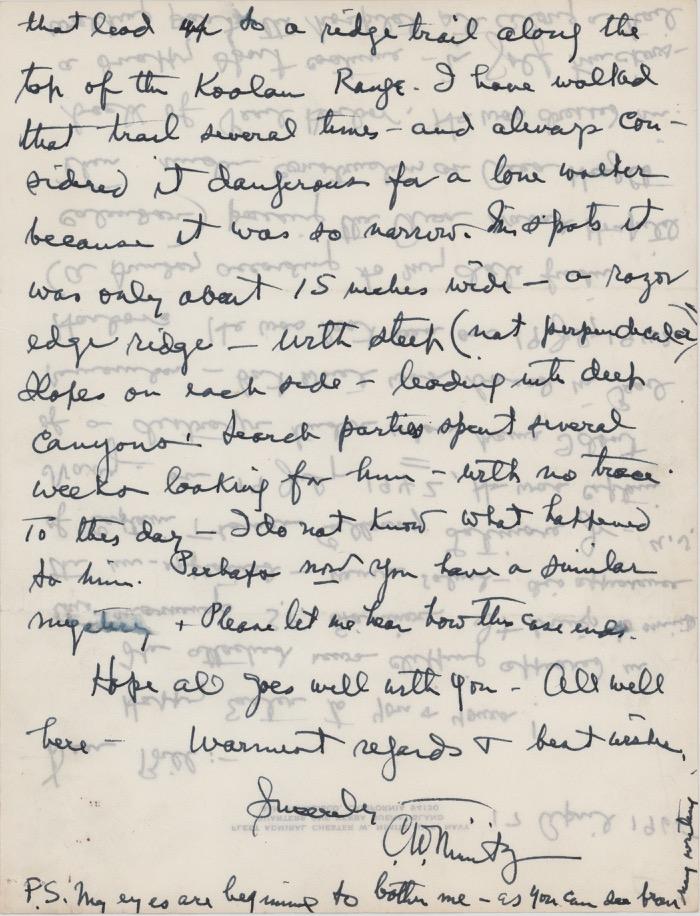 that lead up to a ridge trail along the
top of the Koolau Range. I have walked
that trail several times - and always con-
sidered it dangerous for a lone walker
because it was so narrow. In spots it
was only about 15 inches wide - a razor
edge ridge - with steep (not perpendicular)
slopes on each side - leading into deep
canyons. Search parties spent several
weeks looking for him - with no trace.
To this day - I do not know what happened
to him. Perhaps now you have a similar
mystery + Please let me hear how this case ends.
Hope all goes well with you - All well
here - Warmest regards & best wishes.
Sincerely
C.W. Nimitz
P.S. My eyes are beginning to bother me - as you can see from
my writing